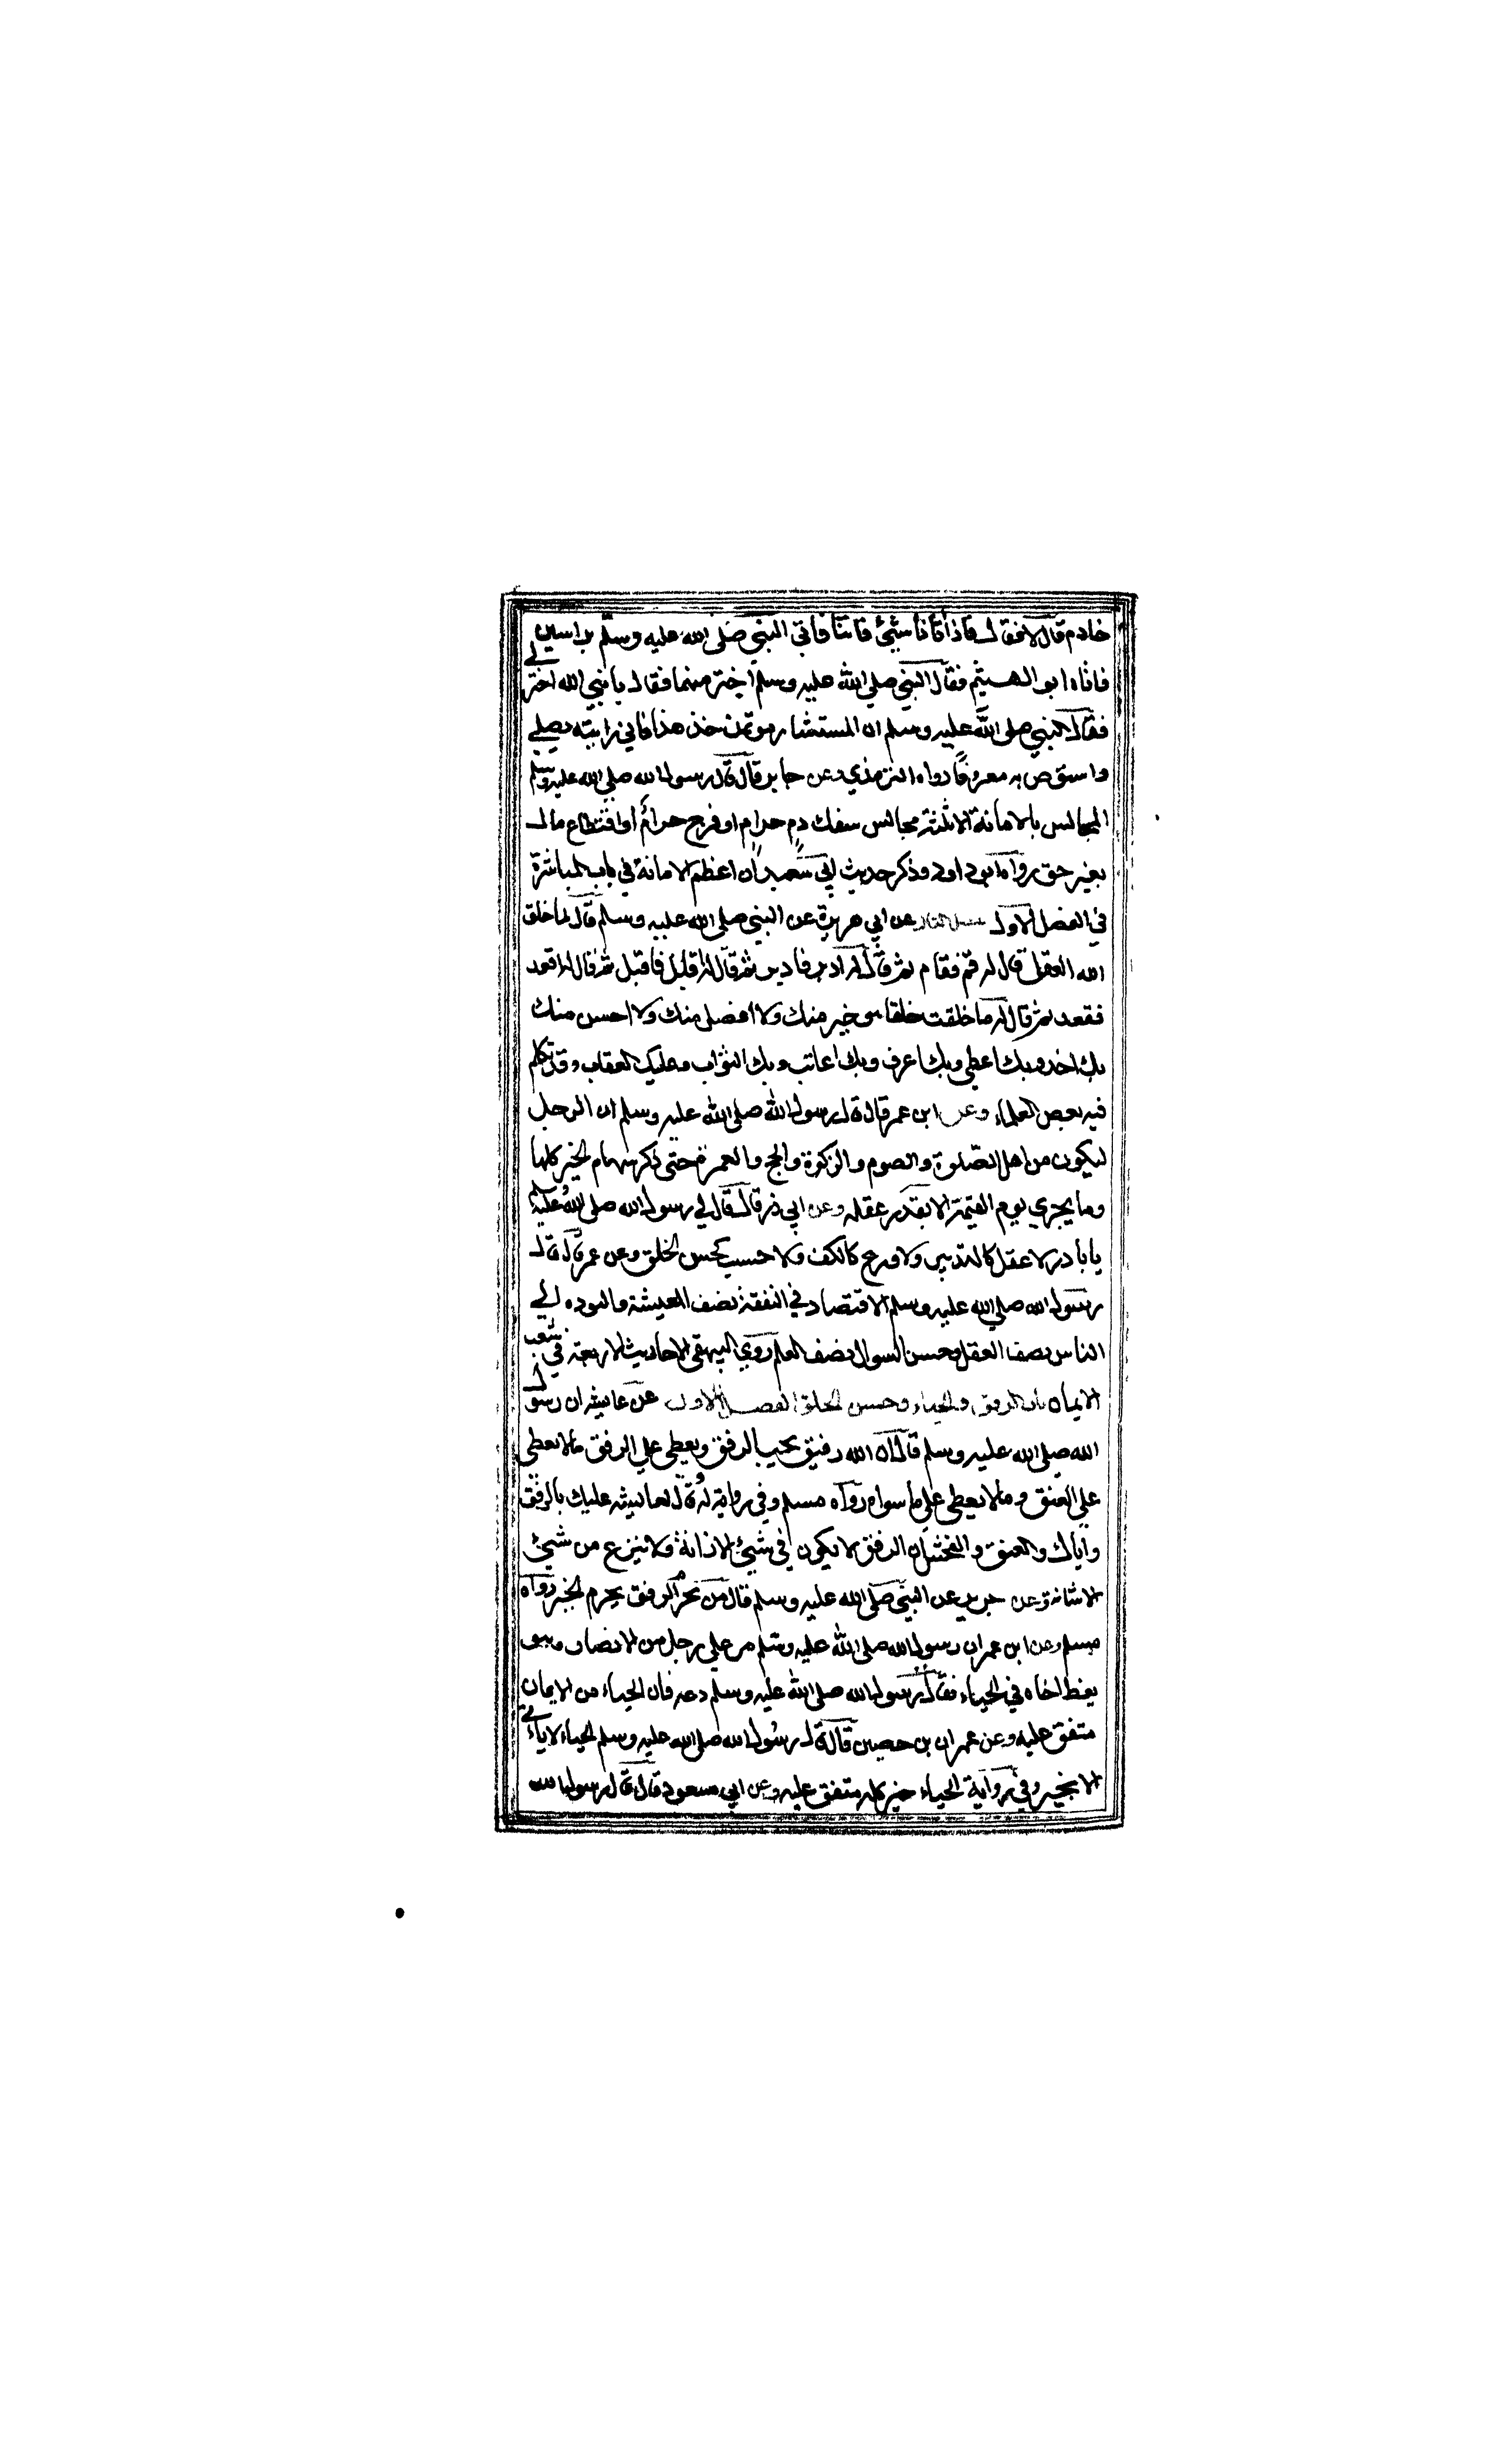 خادم قال لا فقال فاذا أتانا شيئ فاتنا فاتي النبي صلى الله عليه وسلم براسين
فاتاه ابو الهيثم فقال النبي صلي الله عليه وسلم اختر منهما فقال يا نبي الله اختر لي
فقال النبي صلى الله عليه وسلم ان المستشار موتمن خذ هذا فاني رايته يصلي
واستوص به معروفا رواه الترمذي وعن جابر قال قال رسول الله صلي الله عليه وسلم
المجالس بالامانة الا ثلثة مجالس سفك دم حرام او فرج حرام او اقتطاع مال
بغير حق رواه ابو داود وذكر حديث ابي سعيد ان اعظم الامانة في باب المباشرة
في الفصل الاول عن ابي هريرة عن النبي صلى الله عليه وسلم قال لما خلق
الله العقل قال له قم فقام ثم قال له ادبر فادبر ثم قال له اقبل فاقبل ثم قال له اقعد
فقعد ثم قال له ما خلقت خلقا هو خير منك ولا افضل منك ولا احسن منك
بك اخذ وبك اعطي وبك اعرف وبك اعاتب وبك الثواب وعليك العقاب وقد تكلم
فيه بعض العلماء وعن ابن عمر قال قال رسول الله صلى الله عليه وسلم ان الرجل
ليكون من اهل الصلوة والصوم والزكوة والحج والعمرة حتى ذكر سهام الخير كلها
وما يجزي يوم القيمة الا بقدر عقله وعن ابي ذر قال قال لي رسول الله صلى الله عليه وسلم
يا با ذر لا عقل كالتدبير ولا ورع كالكف ولا حسب كحسن الخلق وعن عمر قال قال
رسول الله صلي الله عليه وسلم الاقتصاد في النفقة نصف المعيشة والتودد الي
الناس نصف العقل وحسن السوال نصف العلم روي البيهقي الاحاديث الاربعة في شعب
الايمان باب الرفق والحياء وحسن الخلق الفصل الاول عن عايشة ان رسول
الله صلى الله عليه وسلم قال ان الله رفيق يحب الرفق ويعطي علي الرفق مالا يعطي
علي العنق ومالا يعطي علي ما سواه رواه مسلم وفي رواية له قال لعايشه عليك بالرفق
واياك والعنف والفحش ان الرفق لا يكون في شيئ الا زانة ولا ينزع من شيئ
الا شانه وعن جرير عن النبي صلى الله عليه وسلم قال من يحرم الرفق يحرم الخير رواه
مسلم وعن ابن عمر ان رسول الله صلى الله عليه وسلم مر علي رجل من الانصار وهو
يعظ اخاه في الحياء فقال رسول الله صلى الله عليه وسلم دعه فان الحياء من الايمان
متفق عليه وعن عمران بن حصين قال قال رسول الله صلى الله عليه وسلم الحياء لا ياتي
الا بخير وفي رواية الحياء خير كله متفق عليه وعن ابي مسعود قال قال رسول الله